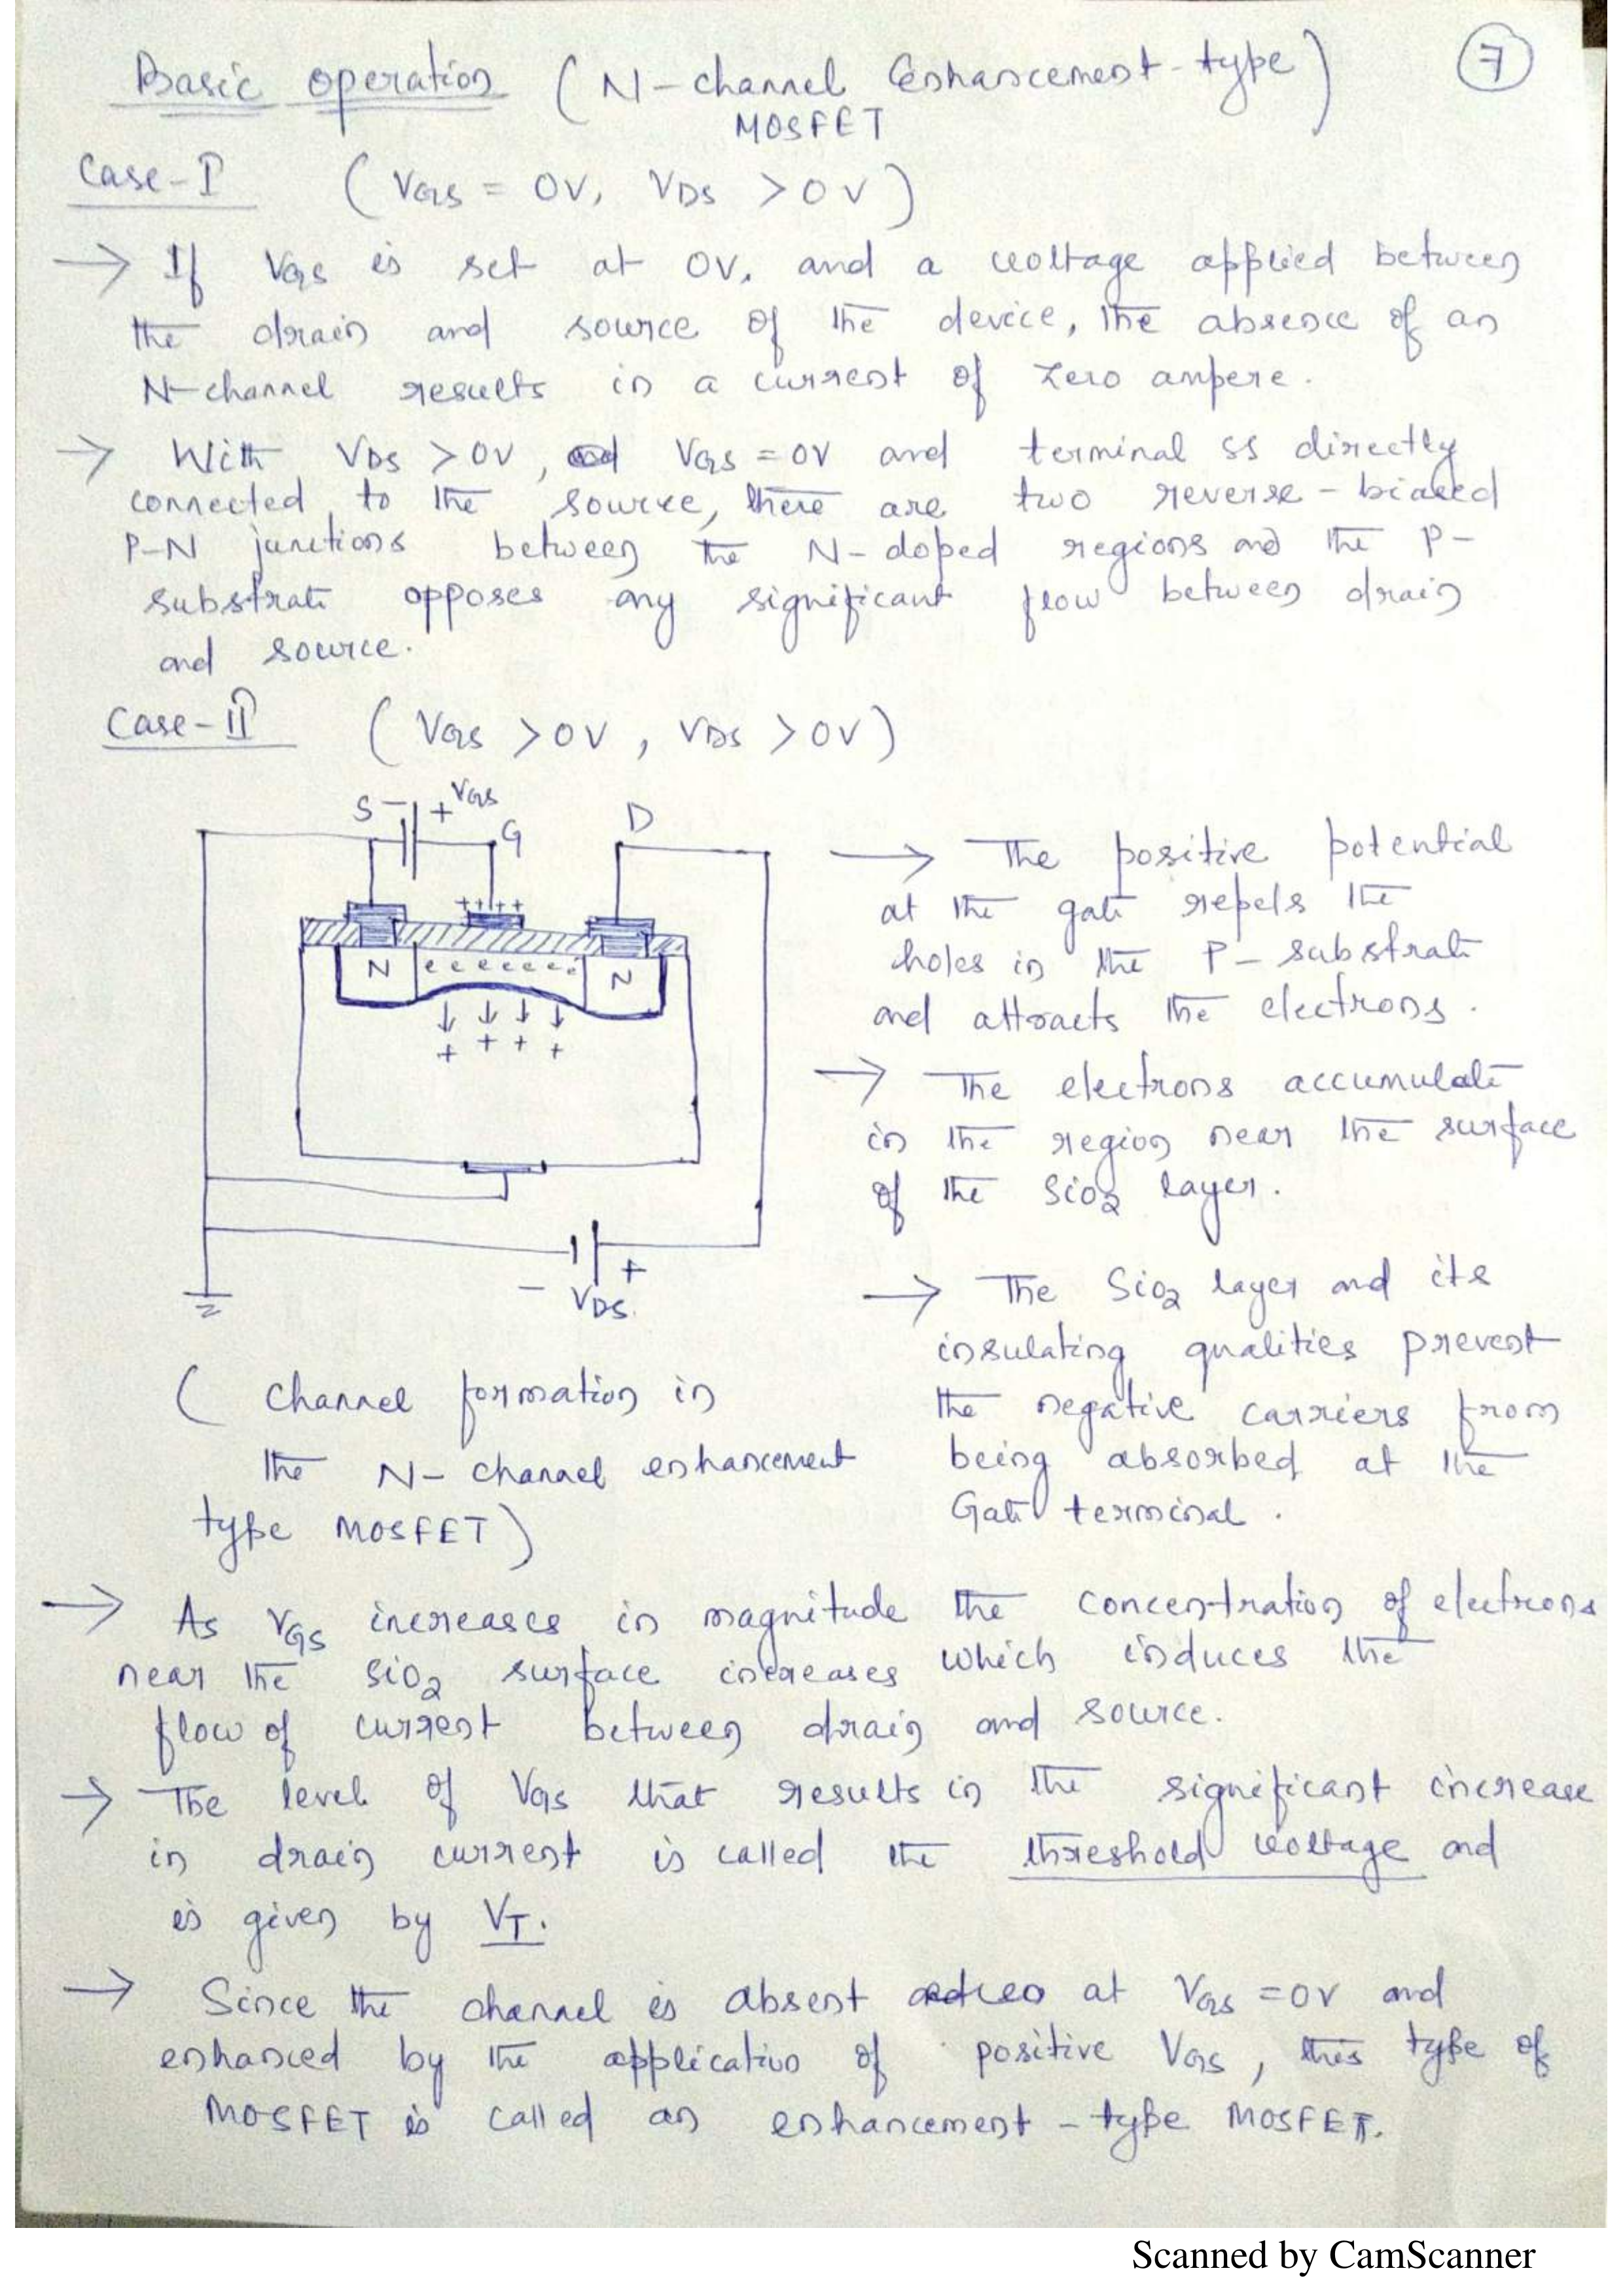 Basic operation (N-channel Enhancement-type)
MOSFET
7
Case-I (VGS = 0V, VDS > 0V)
→ If VGS is set at 0V, and a voltage applied between
the drain and source of the device, the absence of an
N-channel results in a current of zero ampere.
→ With VDS > 0V, VGS = 0V and terminal SS directly
connected to the source, there are two reverse-biased
P-N junctions between the N-doped regions and the P-
substrate opposes any significant flow between drain
and source.
Case-II (VGS > 0V, VDS > 0V)
S - + VGS
G
D
++++
N e e e e e e e N
↓ ↓ ↓ ↓
+ + + +
- +
VDS.
(Channel formation in
the N-channel enhancement
type MOSFET)
→ The positive potential
at the gate repels the
holes in the P-substrate
and attracts the electrons.
→ The electrons accumulate
in the region near the surface
of the SiO2 layer.
→ The SiO2 layer and its
insulating qualities prevent
the negative carriers from
being absorbed at the
Gate terminal.
→ As VGS increases in magnitude the concentration of electrons
near the SiO2 surface increases which induces the
flow of current between drain and source.
→ The level of VGS that results in the significant increase
in drain current is called the threshold voltage and
is given by VT.
→ Since the channel is absent at VGS = 0V and
enhanced by the application of positive VGS, this type of
MOSFET is called an enhancement-type MOSFET.
Scanned by CamScanner